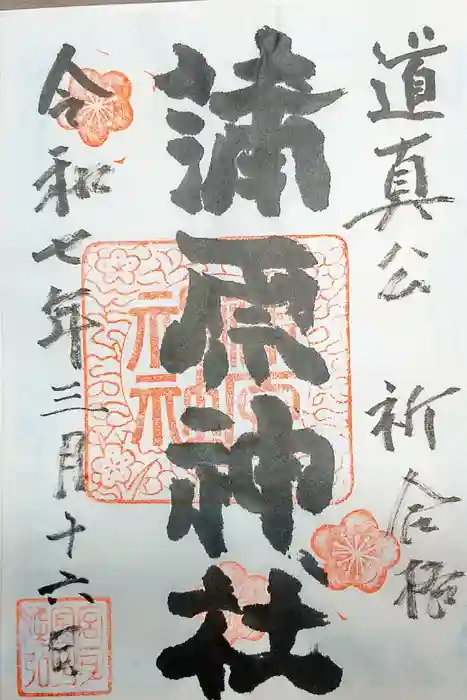 道真公 祈合格
蒲原神社
令和七年三月十六日